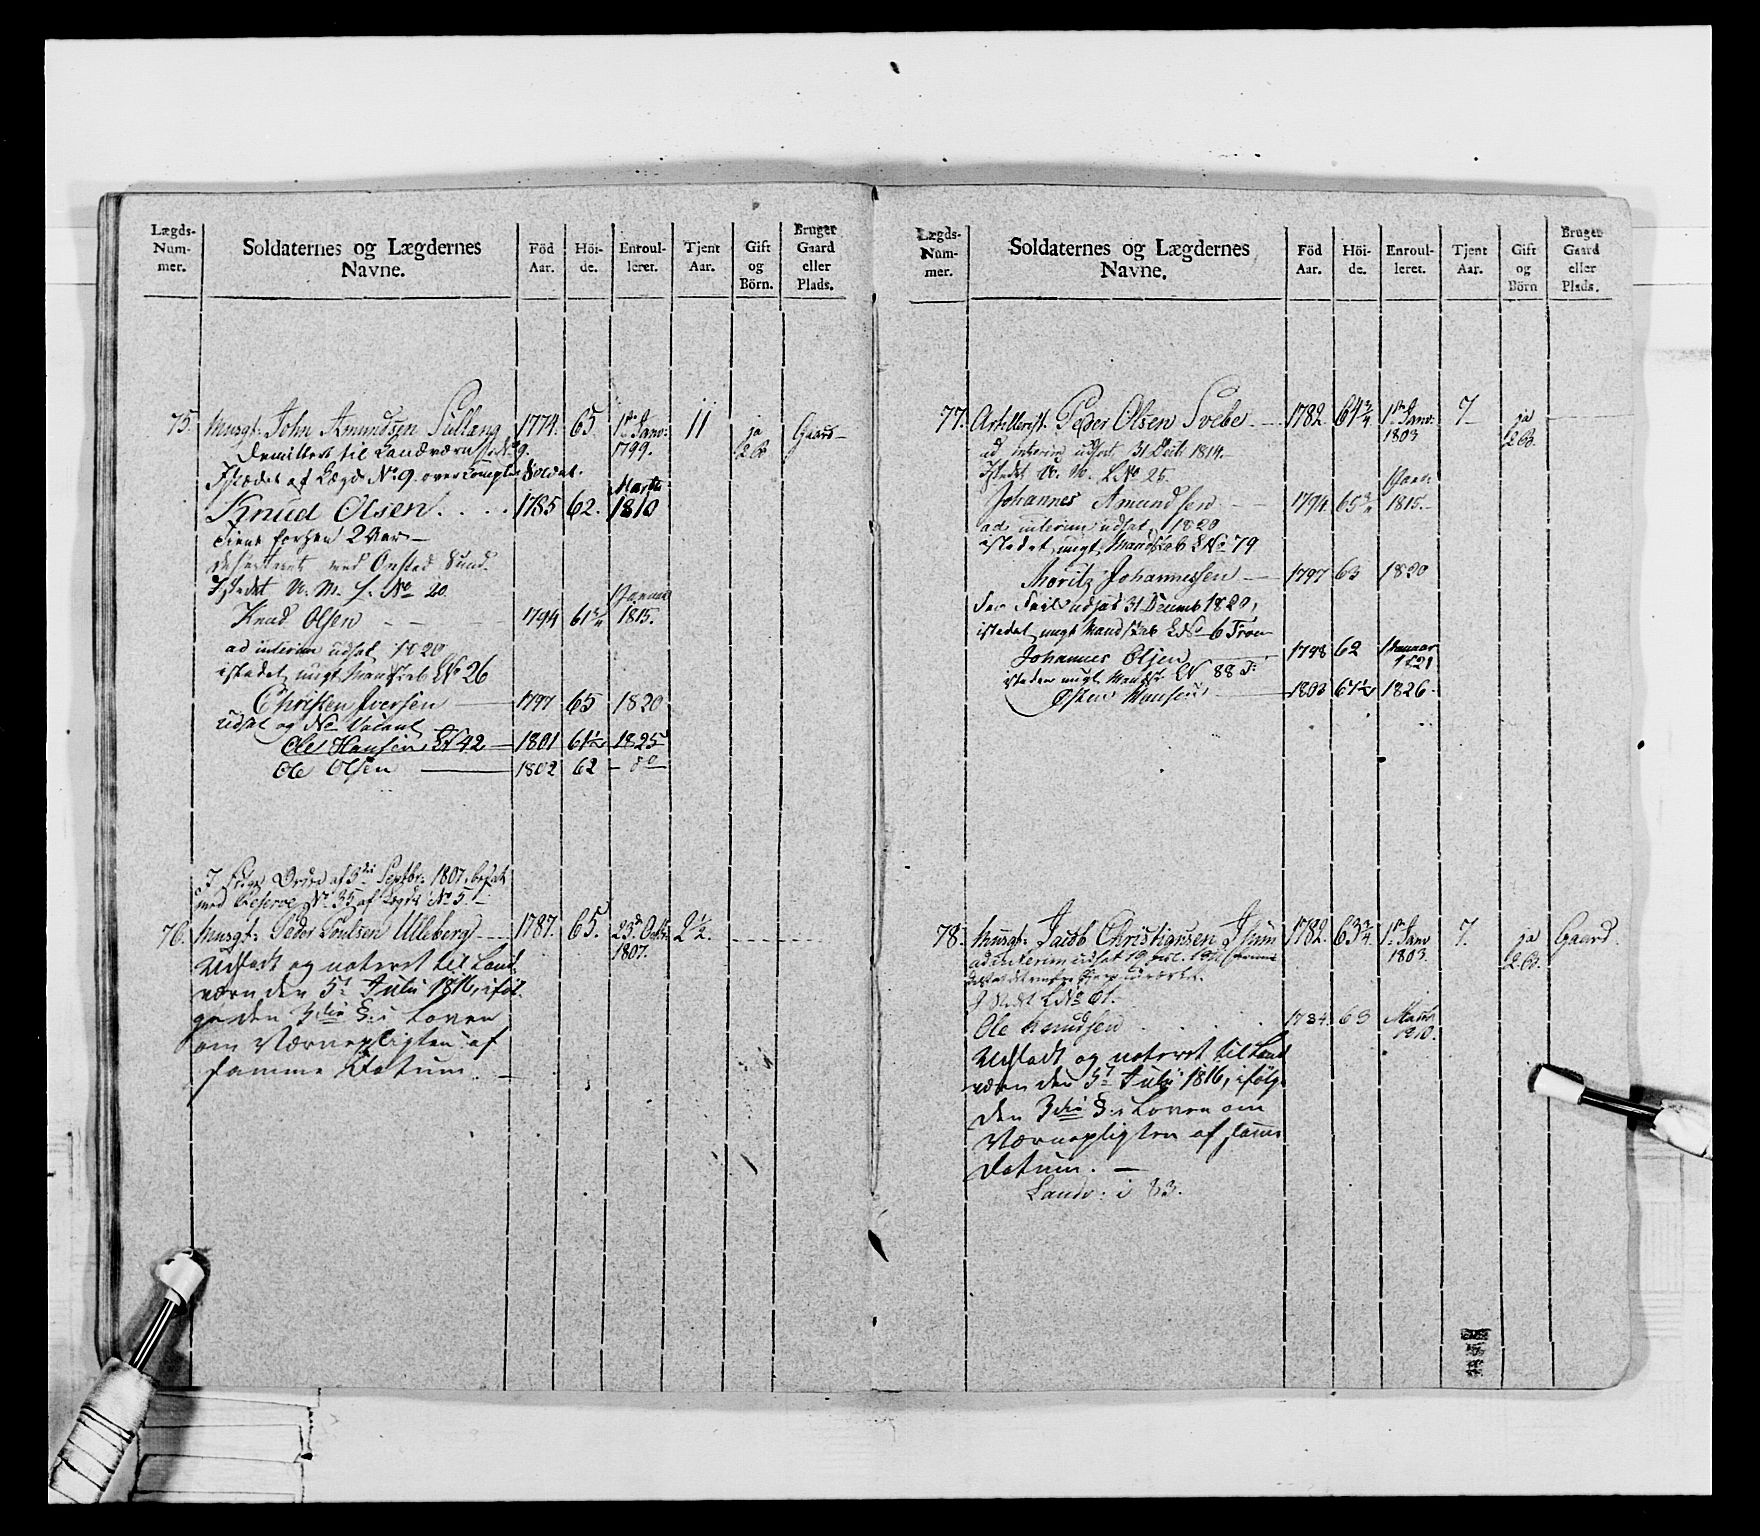 Lægds-Num-mer. Soldaternes og Lægdernes Navne. Föd Aar. Höi-de. Enroul-leret. Tjent Aar. Gift og Börn. Bruger Gaard eller Plads.
75. Musqt: John Amundsen 1774. 65. 1ste Janv: 1799. 11 ja 2 B. Gaard
til Landværn
Istædet af Lægd No. 9. overcomplet Soldat.
Knud Olsen . . . . 1785 62. Martii 1810
Tient forhen 2 Aar
ved Onstad Sund.
Istedet U. M. L. No 20.
Knud Olsen 1794 1815.
ad interim udsat 1820
istedet ungt Mandskab LNo 26
Christen Iversen 1797 65 1820
udsat og No Vacant
Ole Hansen LN 42 1801 61½ 1825
Ole Olsen 1802 62 do
Ordre af 5te Septbr: 1807, besat
med Reserve No. 35 af Lægds No. 5.
76. Musqt: Peder Poulsen Ulleberg 1787. 65. 23de Octbr: 1807. 2½.
Udsladt og noteret til Land-
værn den 5t Julii 1816, iføl-
ge den 3die §. i Loven
om Værnepligten af
samme Datum.
Lægds-Num-mer. Soldaternes og Lægdernes Navne. Föd Aar. Höi-de. Enroul-leret. Tjent Aar. Gift og Börn Bruger Gaard eller Plads.
77. Artillerist. Peder Olsen 1782 64¾ 1ste Janv: 1803 7 ja 2 B.
ad interim udsat 31 Decb 1814.
Istedet U. M. LNo 25.
Johannes Amundsen 1794 65¾ 1815.
ad interim udsat 1820
istedet ungt Mandskab LNo 79
Moritz Johannessen 1797 63 1820
for Feil udsat 31 Decemb 1820,
istedet ungt Mandskab LNo 6
Johannes Olsen 1798 62 Januar 1821
isteden ungt Mandsk LN 88
Osten Hansen 1803 61½ 1826
78. Musqt: Jacob Christiansen Thum 1782. 63¾ 1ste Janv 1803. 7. ja 2 B. Gaard.
ad interim udsat
Ole Knudsen 1784. 63 1810.
Udsladt og noteret til Land
værn den 5t Julii 1816, ifølge
den 3die §. i Loven om
Værnepligten af samme
Datum.
Landv: i 83.